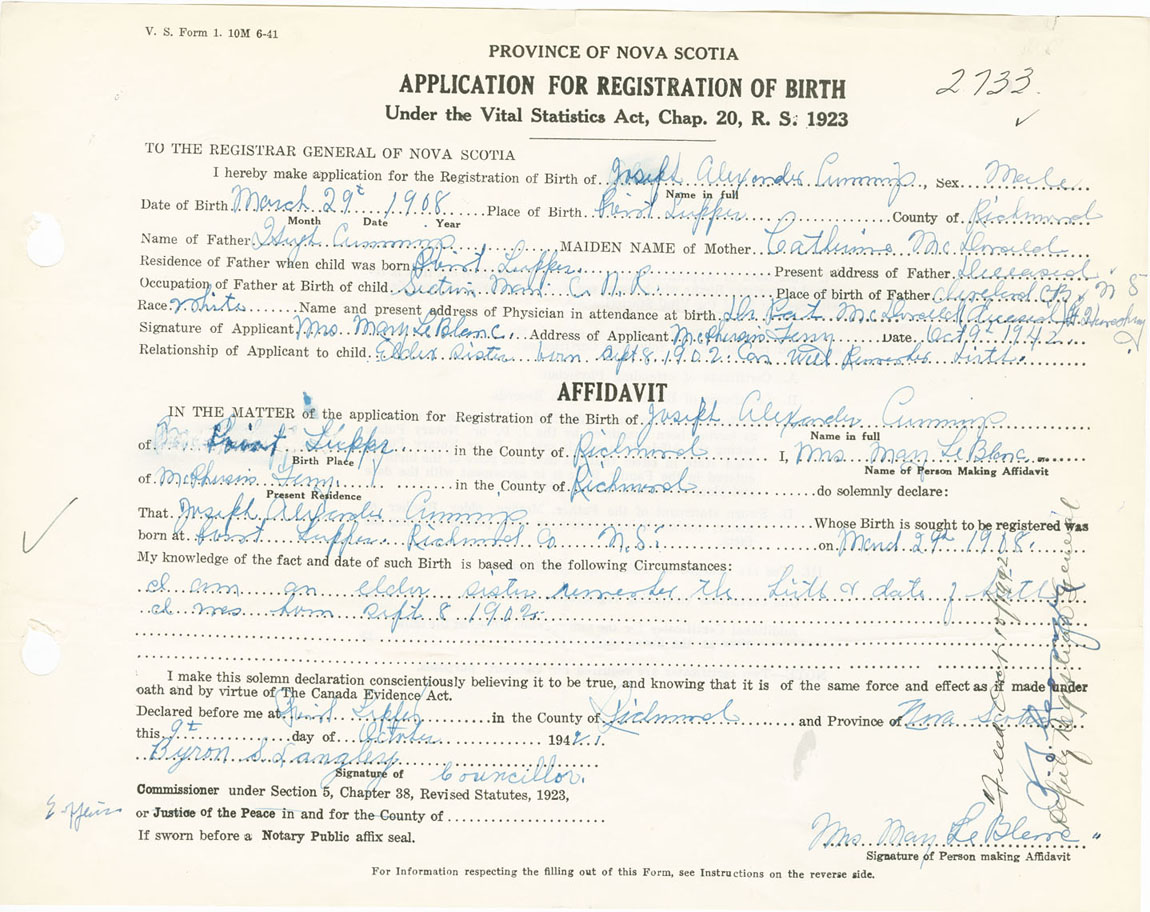 V. S. Form 1. 10M 6-41
PROVINCE OF NOVA SCOTIA
APPLICATION FOR REGISTRATION OF BIRTH
2733
Under the Vital Statistics Act, Chap. 20, R. S. 1923
TO THE REGISTRAR GENERAL OF NOVA SCOTIA
I hereby make application for the Registration of Birth of Joseph Alexander Cummings, Sex Male
Name in full
Date of Birth March 29th 1908 Place of Birth Point Tupper County of Richmond
Month Date Year
Name of Father Hugh Cummings MAIDEN NAME of Mother Catherine McDonald
Residence of Father when child was born Point Tupper Present address of Father Deceased
Occupation of Father at Birth of child Section Man C.N.R. Place of birth of Father Cleveland CB, N S
Race White Name and present address of Physician in attendance at birth Dr. McDonald Deceased Pt. Hawkesbury
Signature of Applicant Mrs. Mary LeBlanc Address of Applicant McPherson Ferry Date Oct 9th 1942
Relationship of Applicant to child Elder Sister born Sept 8 1902 Can Well Remember birth.
AFFIDAVIT
IN THE MATTER of the application for Registration of the Birth of Joseph Alexander Cummings
Name in full
of Point Tupper in the County of Richmond I, Mrs Mary LeBlanc
Birth Place
Name of Person Making Affidavit
of McPherson Ferry in the County of Richmond do solemnly declare:
Present Residence
That Joseph Alexander Cummings Whose Birth is sought to be registered was
born at Point Tupper Richmond Co N.S. on March 29th 1908
My knowledge of the fact and date of such Birth is based on the following Circumstances:
I am an elder sister remember the birth & date of birth
I was born Sept 8 1902
I make this solemn declaration conscientiously believing it to be true, and knowing that it is of the same force and effect as if made under
oath and by virtue of The Canada Evidence Act.
Declared before me at Point Tupper in the County of Richmond and Province of Nova Scotia
this 9th day of October 1942.
Byron S Langley
Signature of Councillor
Commissioner under Section 5, Chapter 38, Revised Statutes, 1923,
or Justice of the Peace in and for the County of
If sworn before a Notary Public affix seal.
Mrs. Mary LeBlanc
Signature of Person making Affidavit
For Information respecting the filling out of this Form, see Instructions on the reverse side.
Filed Oct 10/1942
Deputy Registrar General